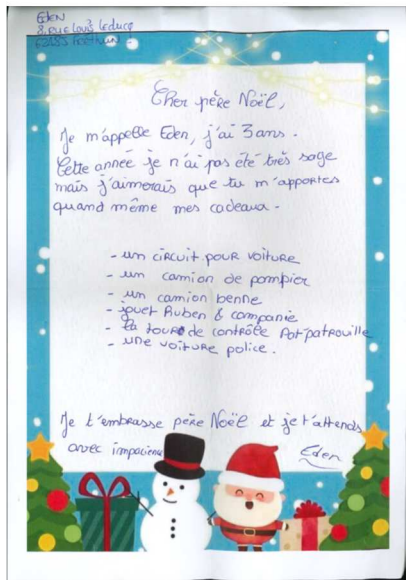 EDEN
8, rue Louis Leducq
Cher père Noël,
Je m'appelle Eden, j'ai 3 ans.
Cette année je n'ai pas été très sage
mais j'aimerais que tu m'apportes
quand même mes cadeaux.
- un circuit pour voiture
- un camion de pompier
- un camion benne
- jouet Ruben & companie
- la tour de contrôle Pat'patrouille
- une voiture police.
Je t'embrasse père Noël et je t'attends
avec impacience
Eden